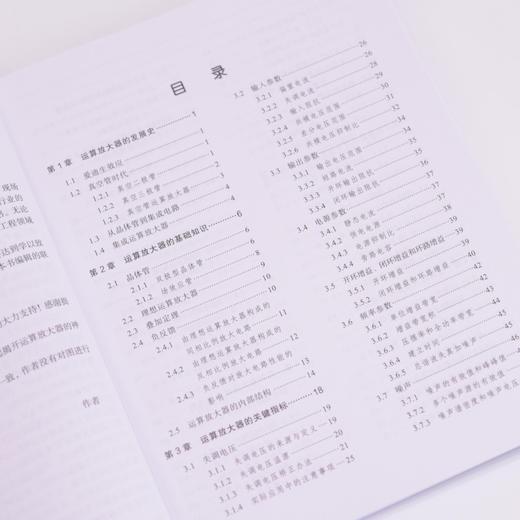 现场
行业的
书。无论
工程领域
达到学以致
本书编辑的敬
大力支持！感谢我
揭开运算放大器的神
一致，作者没有对图进行
作者
目 录
第1章 运算放大器的发展史 1
1.1 爱迪生效应 1
1.2 真空管时代 1
1.2.1 真空二极管 1
1.2.2 真空三极管 2
1.2.3 真空管运算放大器 3
1.3 从晶体管到集成电路 4
1.4 集成运算放大器 4
第2章 运算放大器的基础知识 6
2.1 晶体管 6
2.1.1 双极型晶体管 6
2.1.2 场效应管 8
2.2 理想运算放大器 9
2.3 叠加定理 10
2.4 负反馈
2.4.1 由理想运算放大器构成的
同相比例放大电路
2.4.2 由理想运算放大器构成的
反相比例放大电路
2.4.3 负反馈对放大电路性能的
影响
2.5 运算放大器的内部结构
第3章 运算放大器的关键指标 18
3.1 失调电压 19
3.1.1 失调电压的来源与定义 19
3.1.2 失调电压温漂 20
3.1.3 失调电压矫正办法 21
3.1.4 实际应用中的注意事项 25
3.2 输入参数 26
3.2.1 偏置电流 26
3.2.2 失调电流 28
3.2.3 输入阻抗 29
3.2.4 共模电压范围 30
3.2.5 差分电压范围 31
3.2.6 共模电压抑制比 32
3.3 输出参数 34
3.3.1 输出电压范围 34
3.3.2 短路电流
3.3.3 开环输出阻抗
3.3.4 闭环输出阻抗
3.4 电源参数
3.4.1 静态电流
3.4.2 供电电源
3.4.3 电源抑制比
3.4.4 旁路电容
3.5 开环增益、闭环增益和环路增益
3.5.1 开环增益
3.5.2 闭环增益和环路增益
3.6 频率参数 42
3.6.1 单位增益带宽
3.6.2 增益带宽积
3.6.3 压摆率和全功率带宽
3.6.4 建立时间
3.6.5 总谐波失真加噪声 46
3.7 噪声
3.7.1 噪声的有效值和峰峰值
3.7.2 多个噪声源的有效值
3.7.3 噪声谱密度和噪声电压